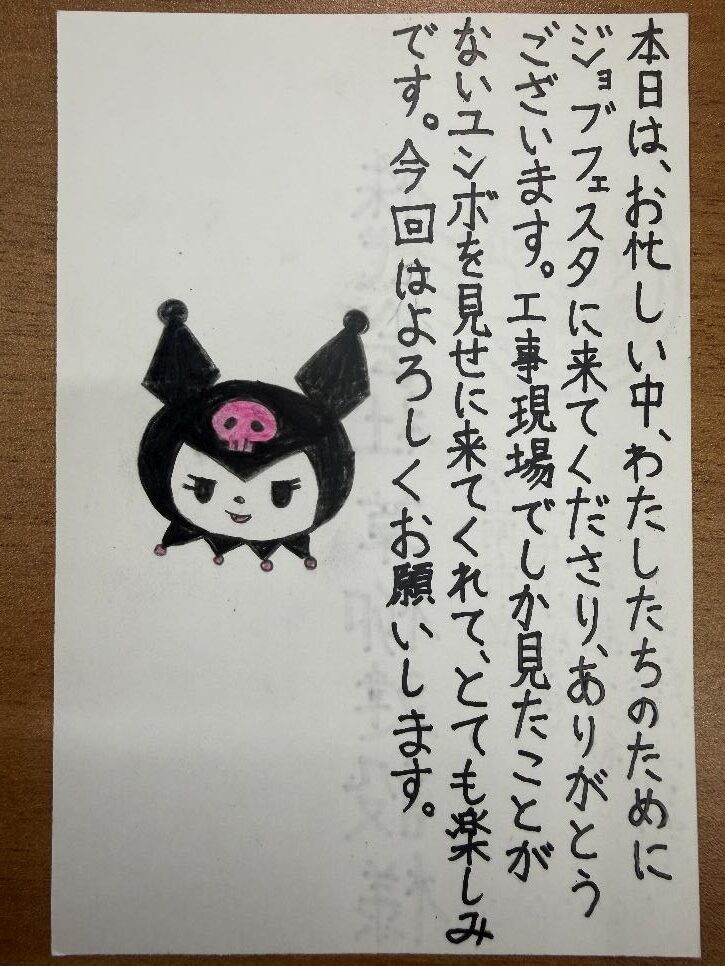 本日は、お忙しい中、わたしたちのために
ジョブフェスタに来てくださり、ありがとう
ございます。工事現場でしか見たことが
ないユンボを見せに来てくれて、とても楽しみ
です。今回はよろしくお願いします。